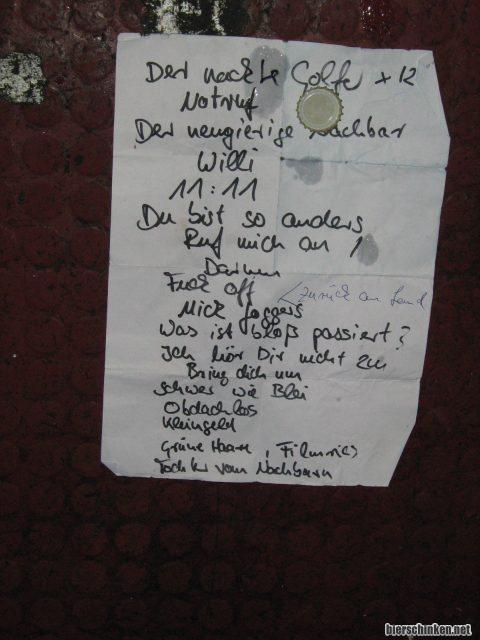 Der nackte Golfer x 12
Notruf
Der neugierige Nachbar
Willi
11:11
Du bist so anders
Ruf mich an
Darum
Fuck off
zurück an Land
Mick Joggers
Was ist bloß passiert?
Ich hör Dir nicht zu
Bring dich um
schwer wie Blei
Obdachlos
Kleingeld
Grüne Haare, Filmriss
Tochter vom Nachbarn
bierschinken.net